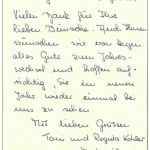 Vielen Dank für Ihre
lieben Wünsche. Auch Ihnen
wünschen wir von Herzen
alles Gute zum Jahres-
wechsel und hoffen auf-
richtig, Sie im neuen
Jahr wieder einmal bei
uns zu sehen
Mit lieben Grüssen
Toni und Regula Kohler